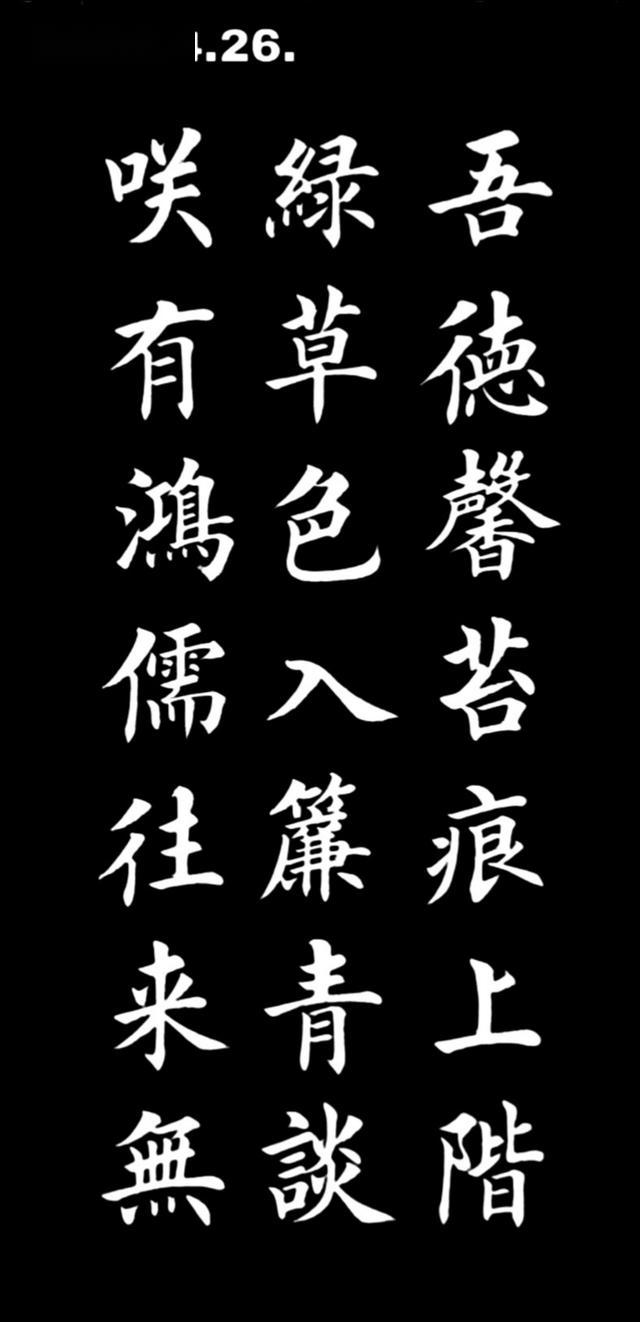 .26.
吾徳馨苔痕上階
緑草色入簾青談
咲有鴻儒往来無